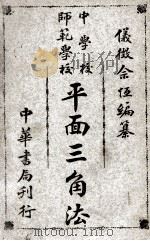 儀徵余恒編纂
中學校
師範學校
平面三角法
中華書局刊行